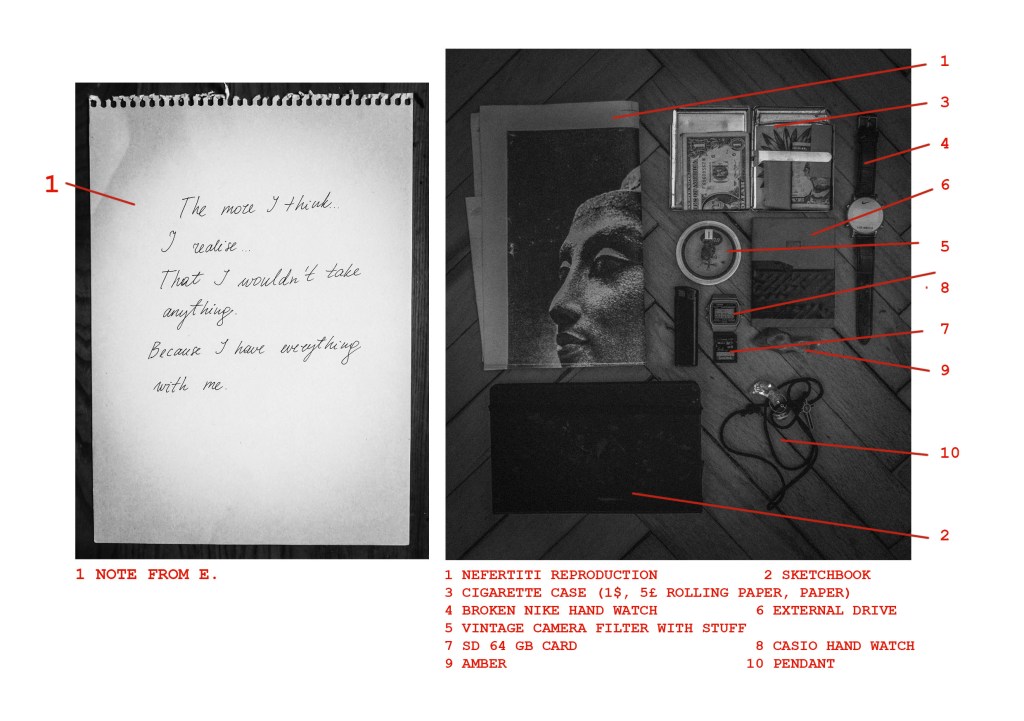 1
The more I think...
I realise...
That I wouldn't take
anything.
Because I have everything
with me.
1 NOTE FROM E.
1
3
4
6
5
8
7
9
10
2
1 NEFERTITI REPRODUCTION 2 SKETCHBOOK
3 CIGARETTE CASE (1$, 5£ ROLLING PAPER, PAPER)
4 BROKEN NIKE HAND WATCH 6 EXTERNAL DRIVE
5 VINTAGE CAMERA FILTER WITH STUFF
7 SD 64 GB CARD 8 CASIO HAND WATCH
9 AMBER 10 PENDANT